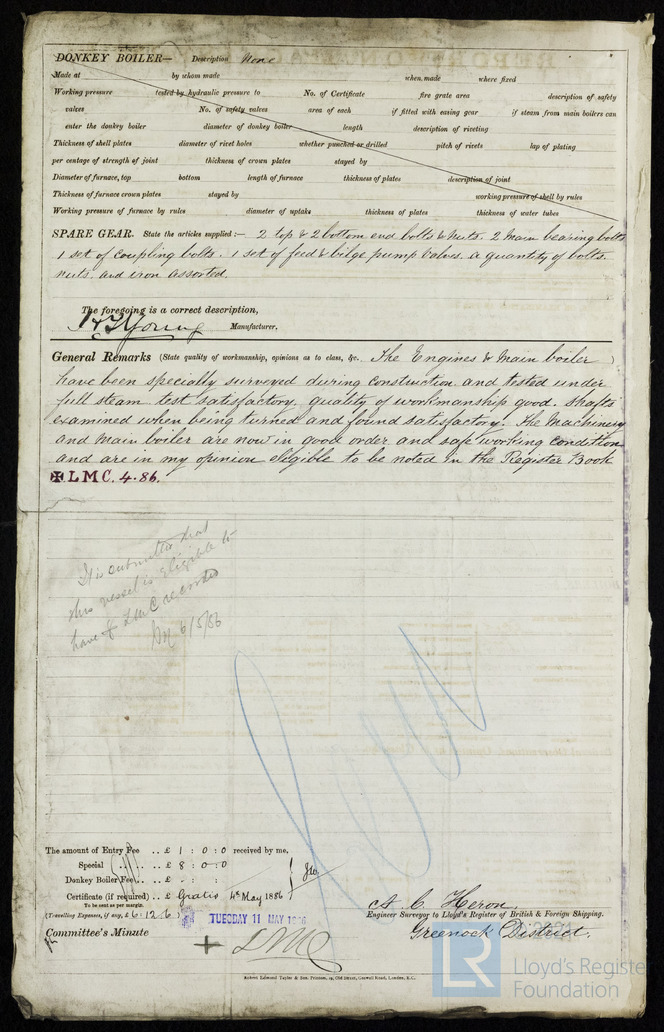 DONKEY BOILER— Description None
Made at by whom made when made where fixed
Working pressure tested by hydraulic pressure to No. of Certificate fire grate area description of safety
valves No. of safety valves area of each if fitted with easing gear if steam from main boilers can
enter the donkey boiler diameter of donkey boiler length description of riveting
Thickness of shell plates diameter of rivet holes whether punched or drilled pitch of rivets lap of plating
per centage of strength of joint thickness of crown plates stayed by
Diameter of furnace, top bottom length of furnace thickness of plates description of joint
Thickness of furnace crown plates stayed by working pressure of shell by rules
Working pressure of furnace by rules diameter of uptake thickness of plates thickness of water tubes
SPARE GEAR. State the articles supplied:— 2 top & 2 bottom end bolts & nuts. 2 Main bearing bolts
1 set of coupling bolts. 1 set of feed & bilge pump valves. a quantity of bolts.
nuts. and iron assorted.
The foregoing is a correct description,
Young Manufacturer.
General Remarks (State quality of workmanship, opinions as to class, &c. The Engines & Main boiler
have been specially surveyed during construction and tested under
full steam test satisfactory. quality of workmanship good. Shafts
examined when being turned and found satisfactory. The Machinery
and Main boiler are now in good order and safe working condition
and are in my opinion eligible to be noted in the Register Book
✠ LMC. 4.86.
It is submitted that
this vessel is eligible to
have ✠ LMC recorded
6/5/86
The amount of Entry Fee .. £ 1 : 0 : 0 received by me,
Special .. .. £ 8 : 0 : 0
Donkey Boiler Fee .. £ : :
Certificate (if required) .. £ Gratis 4th May 1886
To be sent as per margin.
(Travelling Expenses, if any, £ 6.12.6)
A. C. Heron.
Engineer Surveyor to Lloyd's Register of British & Foreign Shipping.
Greenock District.
TUESDAY 11 MAY 1886
Committee's Minute
+ LMC
Robert Edmund Taylor & Son, Printers, 19, Old Street, Goswell Road, London, E.C.
LR
Lloyd's Register
Foundation